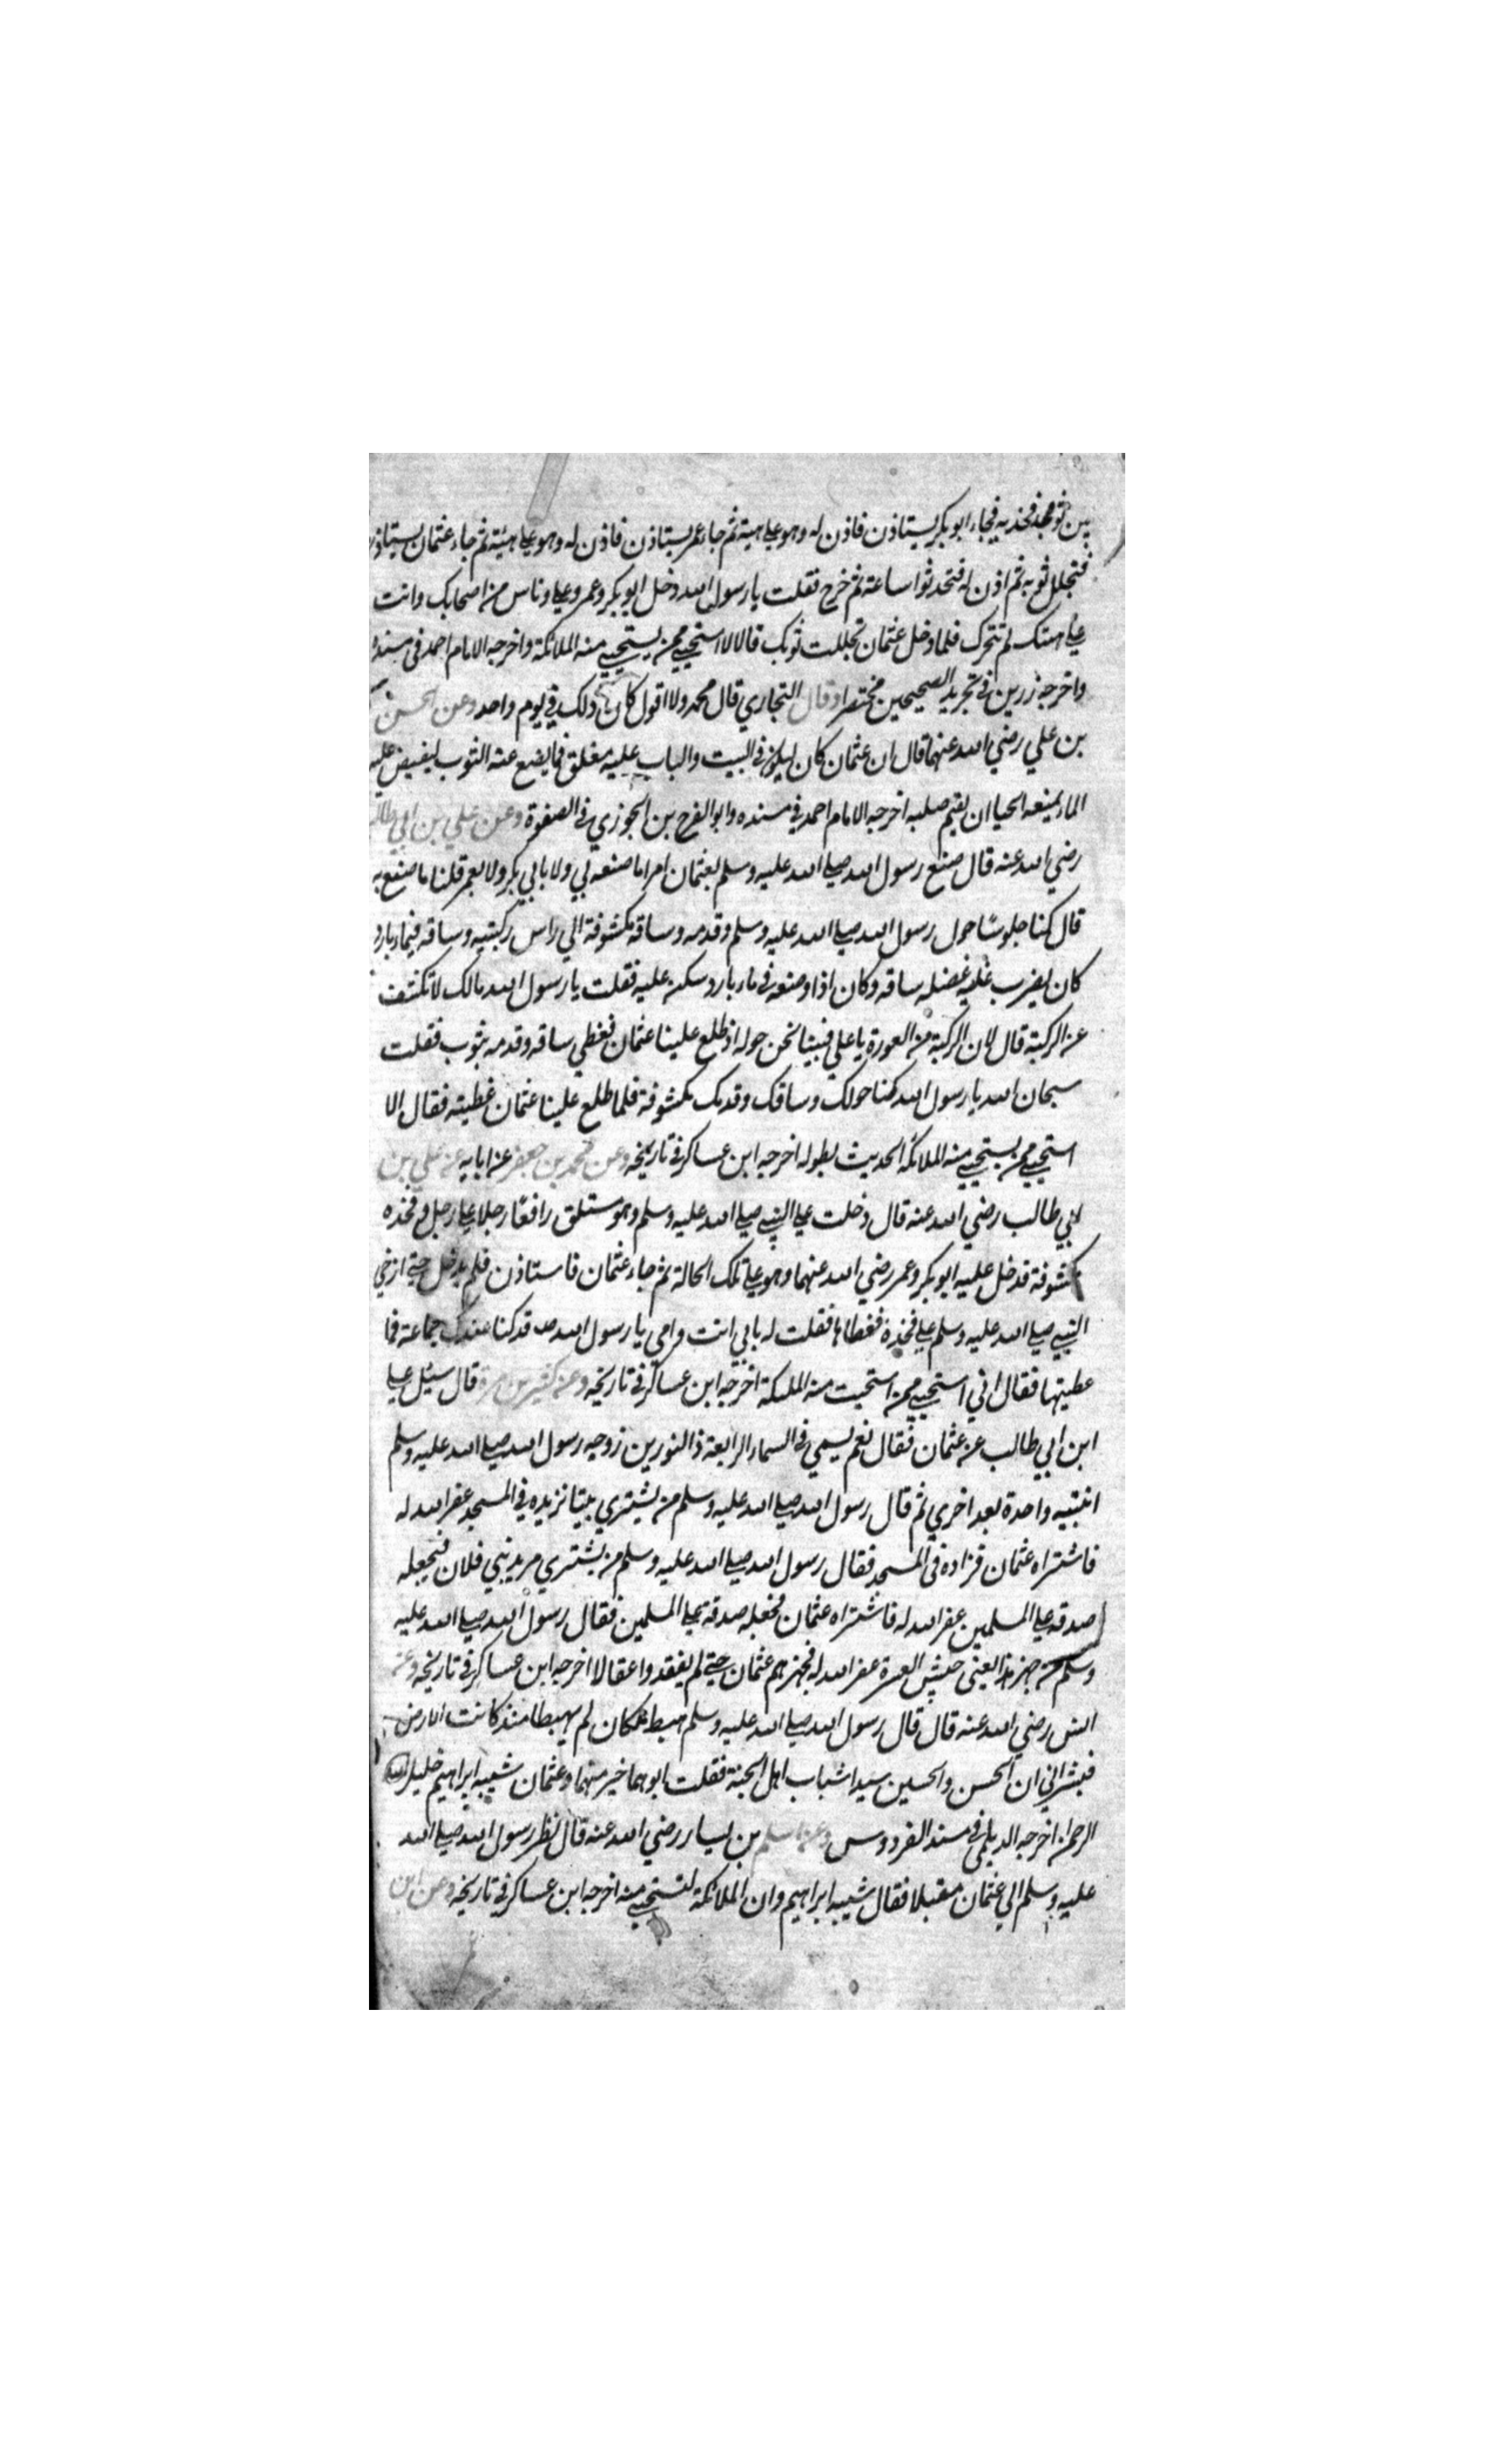 بين فخذيه فجاء ابو بكر يستاذن فاذن له وهو علي هيئته ثم جاء عمر يستاذن فاذن له وهو علي هيئته ثم جاء عثمان يستاذن
فتجلل ثوبه ثم اذن له فتحدثوا ساعة ثم خرج فقلت يا رسول الله دخل ابو بكر وعمر وعلي وناس من اصحابك وانت
علي هيتك لم تتحرك فلما دخل عثمان تجللت ثوبك قال الا استحيي ممن يستحيي منه الملائكة واخرجه الامام احمد في مسنده
واخرجه رزين في تجريد الصحيحين مختصرا وقال البخاري قال محمد ولا اقول كان ذلك في يوم واحد وعن الحسن
بن علي رضي الله عنهما قال ان عثمان كان ليكون في البيت والباب عليه مغلق فما يضع عنه الثوب ليفيض عليه
الماء يمنعه الحيا ان يقيم صلبه اخرجه الامام احمد في مسنده وابو الفرج بن الجوزي في الصفوة وعن علي بن ابي طالب
رضي الله عنه قال صنع رسول الله صلي الله عليه وسلم بعثمان امرا ما صنعه بي ولا بابي بكر ولا بعمر قلنا ما صنع به
قال كنا جلوسًا حول رسول الله صلي الله عليه وسلم وقدمه وساقه مكشوفة الي راس ركبتيه وساقه في ماء بارد
كان يضرب عليه عضله ساقه وكان اذا وضعه في ماء بارد سكن عليه فقلت يا رسول الله مالك لا تكشف
عن الركبة قال لان الركبة من العورة يا علي فبينا نحن حوله اذ طلع علينا عثمان فغطي ساقه وقدمه بثوب فقلت
سبحان الله يا رسول الله كنا حولك وساقك وقدمك مكشوفة فلما طلع علينا عثمان غطيته فقال الا
استحيي ممن يستحيي منه الملائكة الحديث بطوله اخرجه ابن عساكر في تاريخه وعن محمد بن جعفر عن ابايه عن علي بن
ابي طالب رضي الله عنه قال دخلت علي النبي صلي الله عليه وسلم وهو مستلق رافعًا رجلا علي رجل وفخذه
مكشوفة فدخل عليه ابو بكر وعمر رضي الله عنهما وهو علي تلك الحالة ثم جاء عثمان فاستاذن فلم يدخل حتي ارخي
النبي صلي الله عليه وسلم علي فخذه فغطاها فقلت له بابي انت وامي يا رسول الله قد كنا عندك جماعة فما
غطيتها فقال اني استحيي ممن استحيت منه الملئكة اخرجه ابن عساكر في تاريخه وعن كثير بن مرة قال سئل علي
ابن ابي طالب عن عثمان فقال نعم يسمي في السماء الرابعة ذا النورين زوجه رسول الله صلي الله عليه وسلم
ابنتيه واحدة بعد اخري ثم قال رسول الله صلي الله عليه وسلم من يشتري بيتا نزيده في المسجد غفر الله له
فاشتراه عثمان فزاده في المسجد فقال رسول الله صلي الله عليه وسلم من يشتري مربد بني فلان فيجعله
صدقه علي المسلمين غفر الله له فاشتراه عثمان فجعله صدقة علي المسلمين فقال رسول الله صلي الله عليه
وسلم من جهز هذا يعني جيش العسرة غفر الله له فجهزهم عثمان حتي لم يفقدوا عقالا اخرجه ابن عساكر في تاريخه وعن
انس رضي الله عنه قال قال رسول الله صلي الله عليه وسلم هبط ملكان لم يهبطا منذ كانت الارض
فبشراني ان الحسن والحسين سيدا شباب اهل الجنة فقلت ابوهما خير منهما وعثمان شبيه ابراهيم خليل
الرحمن اخرجه الديلمي في مسند الفردوس وعن اسلم بن يسار رضي الله عنه قال نظر رسول الله صلي الله
عليه وسلم الي عثمان مقبلا فقال شبيه ابراهيم وان الملائكة لتستحيي منه اخرجه ابن عساكر في تاريخه وعن ابن